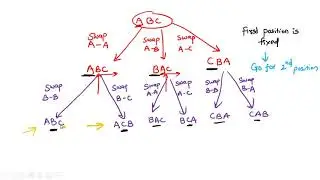 ABC
First position is
fixed
Go for 2nd position
Swap
A-A
Swap
A-B
Swap
A-C
ABC
BAC
CBA
Swap
B-B
Swap
B-C
Swap
A-A
Swap
A-C
Swap
B-B
Swap
B-A
ABC
ACB
BAC
BCA
CBA
CAB